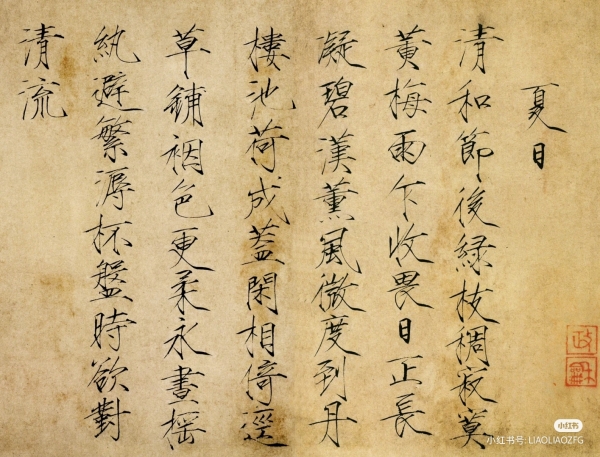 夏日
清和節後緑枝稠寂寞
黃梅雨乍收畏日正長
凝碧漢薰風微度到丹
樓池荷成蓋閑相倚徑
草鋪裀色更柔永晝搖
紈避繁溽杯盤時欲對
清流
政龢
小红书
小红书号: LIAOLIAOZFG